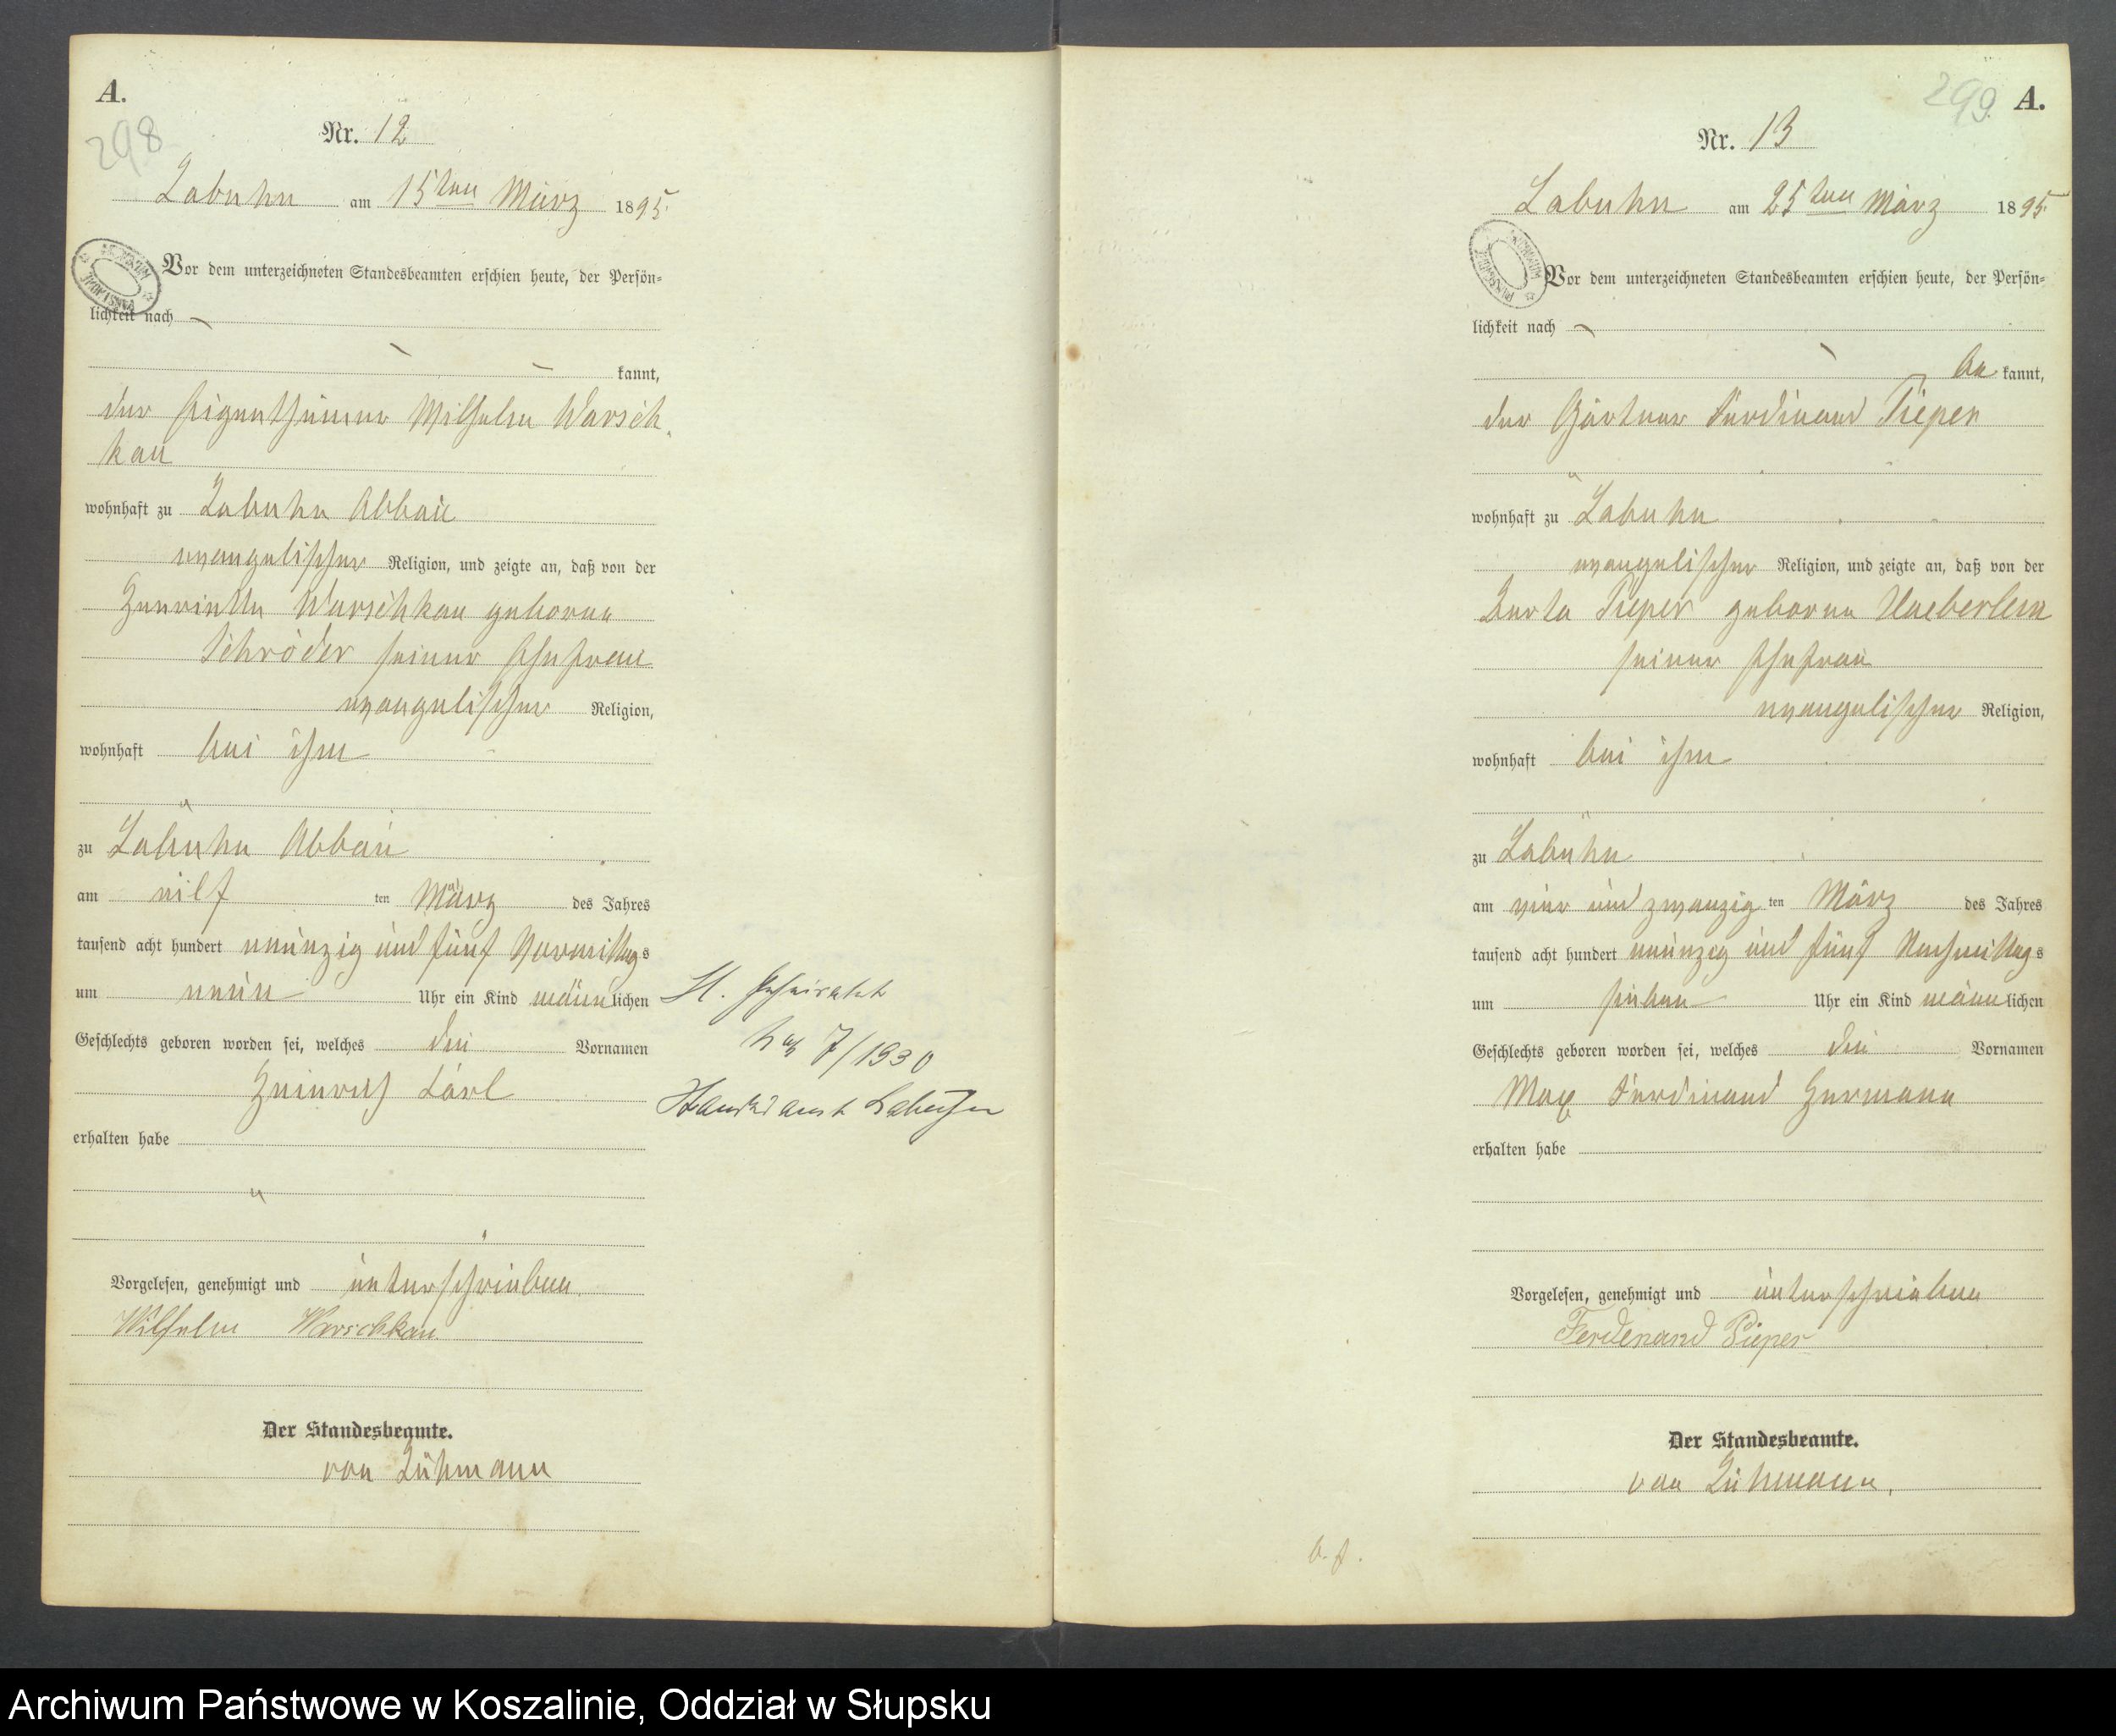 A.
298
Nr. 12
Labuhn am 15ten März 1895.
Vor dem unterzeichneten Standesbeamten erschien heute, der Persön-
lichkeit nach
kannt,
der Eigenthümer Wilhelm Warsch-
kau
wohnhaft zu Labuhn Abbau
evangelischer Religion, und zeigte an, daß von der
Henriette Warschkau geborene
Schröder seiner Ehefrau
evangelischer Religion,
wohnhaft bei ihm
zu Labuhn Abbau
am eilf ten März des Jahres
tausend acht hundert neunzig und fünf Vormittags
um neun Uhr ein Kind männlichen
Geschlechts geboren worden sei, welches die Vornamen
Heinrich Carl
erhalten habe
Vorgelesen, genehmigt und unterschrieben.
Wilhelm Warschkau
Der Standesbeamte.
von Lühmann
H. Geheiratet
7/1930
Standesamt Labuhn
299. A.
Nr. 13
Labuhn am 25ten März 1895.
Vor dem unterzeichneten Standesbeamten erschien heute, der Persön-
lichkeit nach
be kannt,
der Gärtner Ferdinand Pieper
wohnhaft zu Labuhn
evangelischer Religion, und zeigte an, daß von der
Pieper geborene
seiner Ehefrau
evangelischer Religion,
wohnhaft bei ihm
zu Labuhn
am vier und zwanzig ten März des Jahres
tausend acht hundert neunzig und fünf Nachmittags
um sieben Uhr ein Kind männlichen
Geschlechts geboren worden sei, welches die Vornamen
Max Ferdinand Hermann
erhalten habe
Vorgelesen, genehmigt und unterschrieben
Ferdenand Pieper
Der Standesbeamte.
von Lühmann.
Archiwum Państwowe w Koszalinie, Oddział w Słupsku